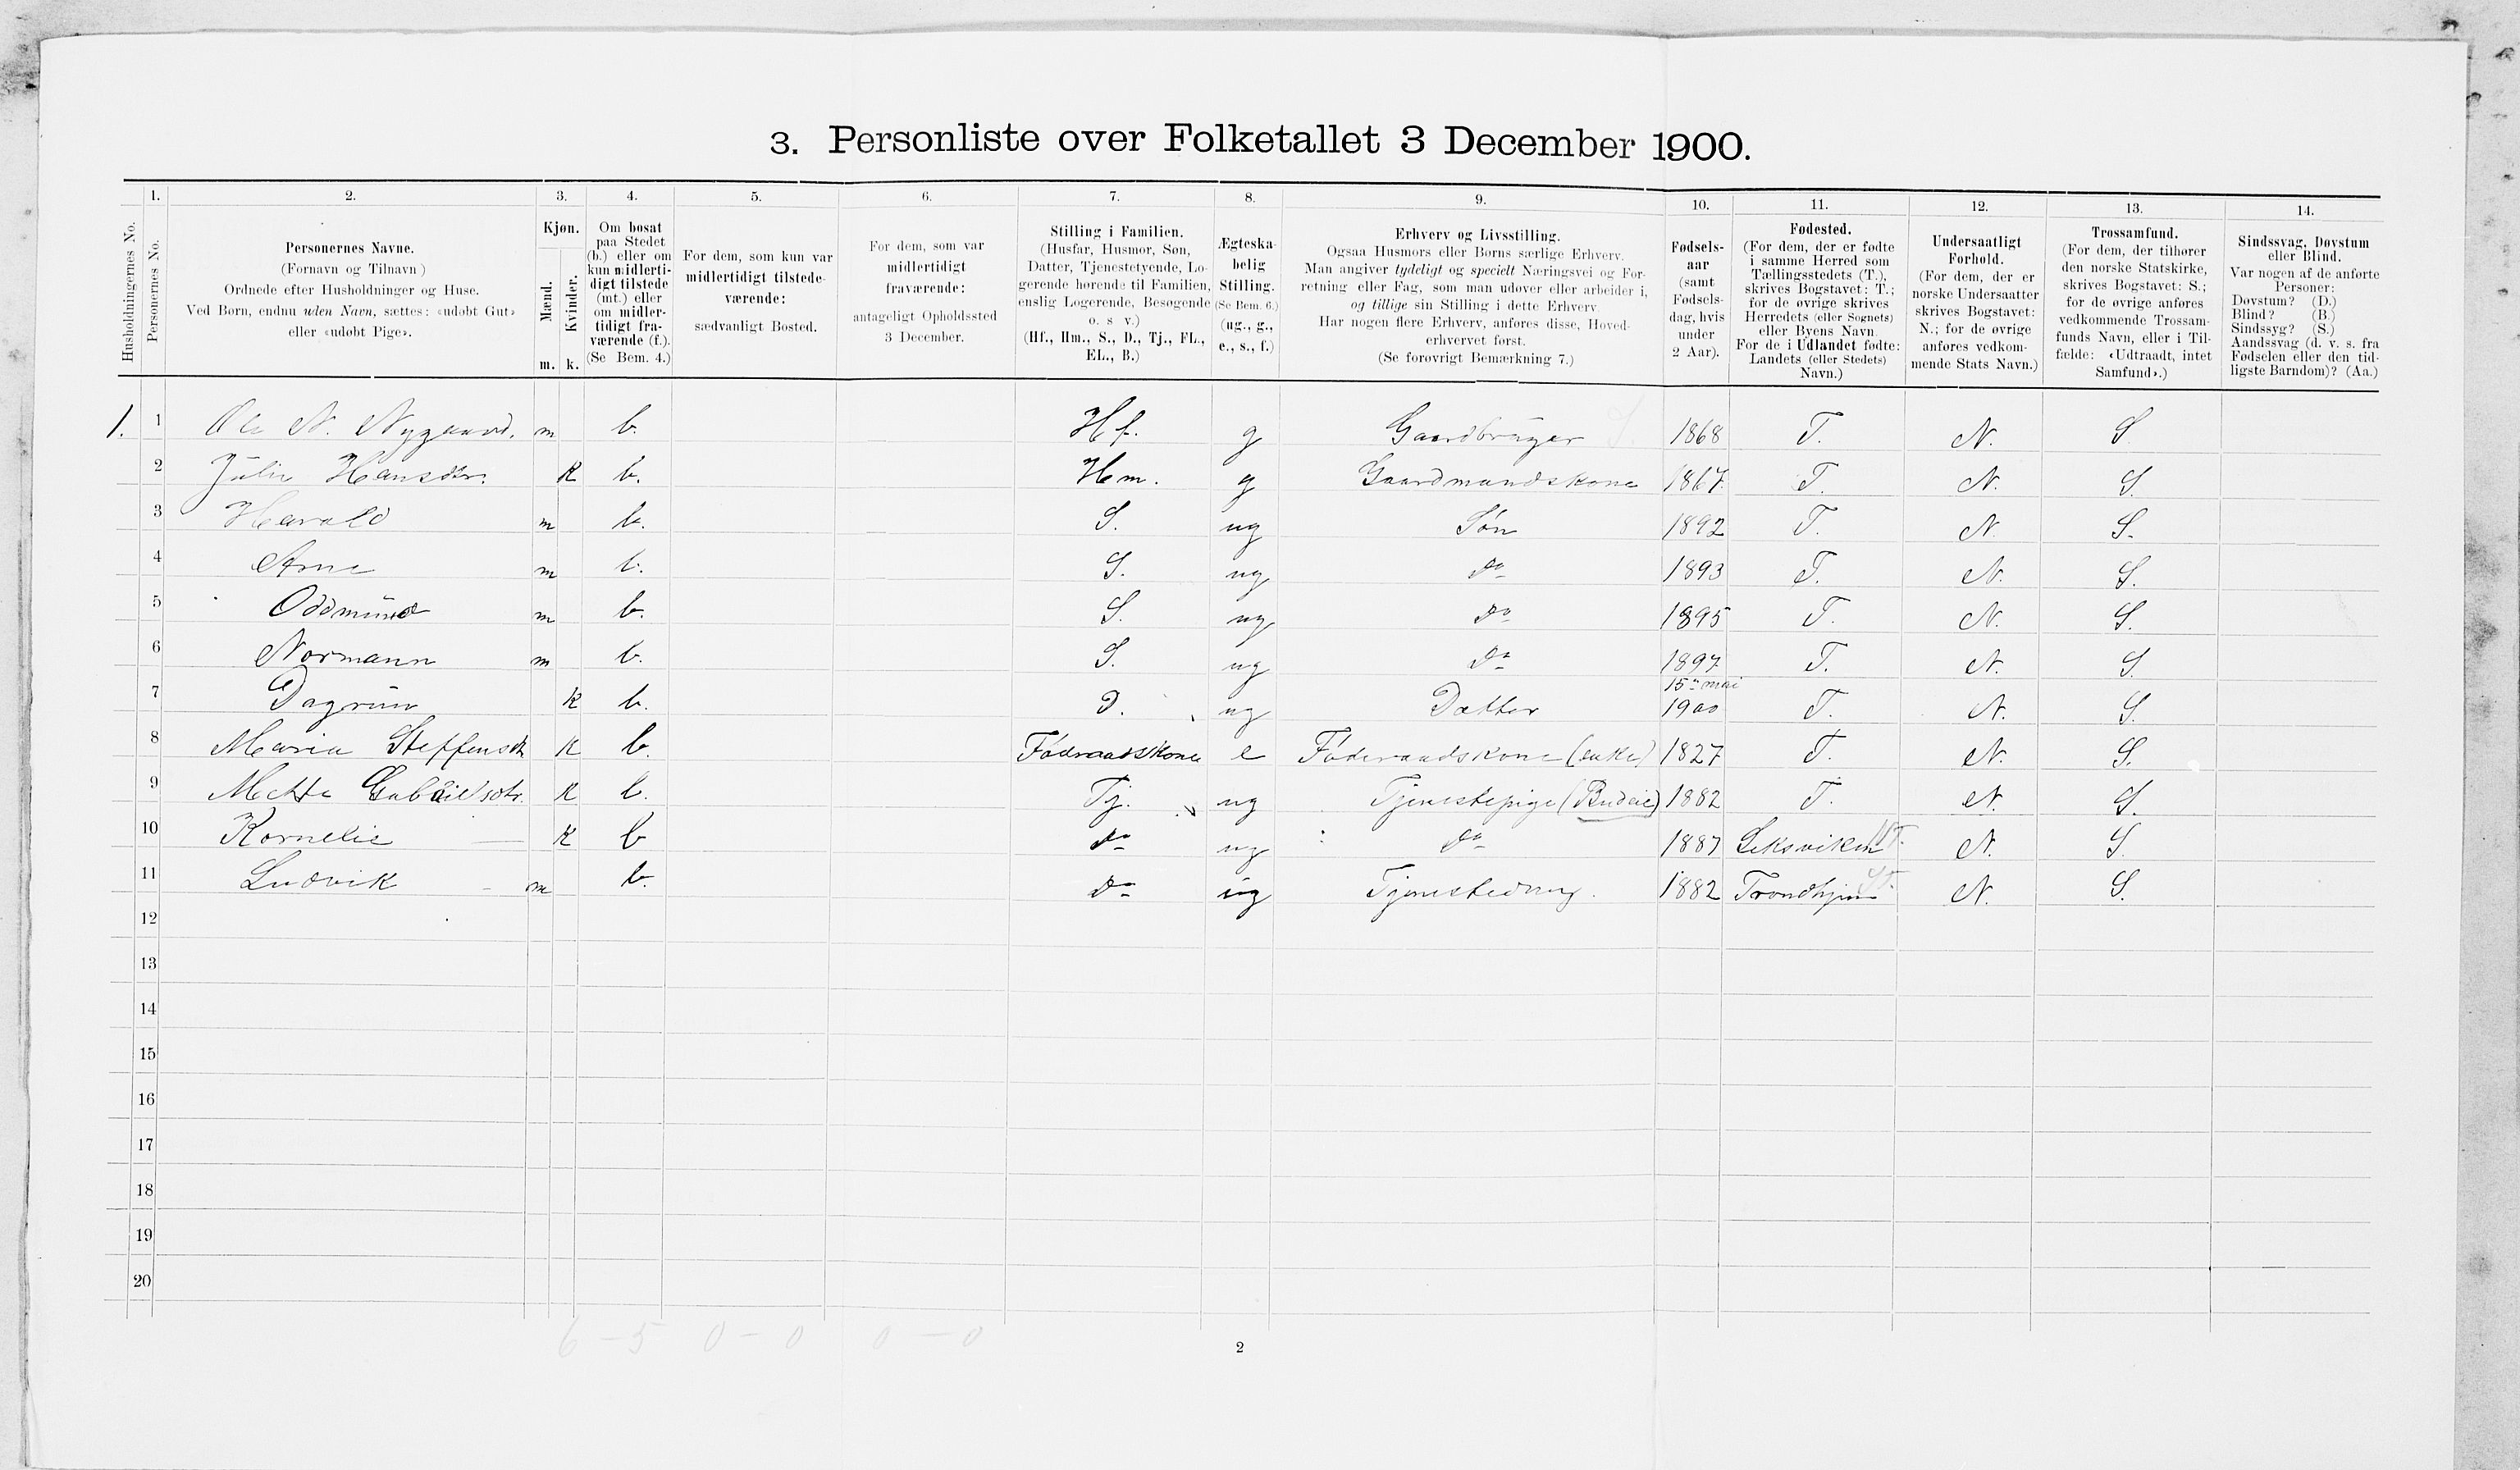 3. Personliste over Folketallet 3 December 1900.
1. 2. 3. 4. 5. 6. 7. 8. 9. 10. 11. 12. 13. 14.
Husholdningernes No.
Personernes No.
Personernes Navne.
(Fornavn og Tilnavn)
Ordnede efter Husholdninger og Huse.
Ved Børn, endnu uden Navn, sættes: «udøbt Gut»
eller «udøbt Pige».
Kjøn.
Mænd.
Kvinder.
m. k.
Om bosat
paa Stedet
(b.) eller om
kun midlerti-
digt tilstede
(mt.) eller
om midler-
tidigt fra-
værende (f.).
(Se Bem. 4.)
For dem, som kun var
midlertidigt tilstede-
værende:
sædvanligt Bosted.
For dem, som var
midlertidigt
fraværende:
antageligt Opholdssted
3 December.
Stilling i Familien.
(Husfar, Husmor, Søn,
Datter, Tjenestetyende, Lo-
gerende hørende til Familien,
enslig Logerende, Besøgende
o. s v.)
(Hf., Hm., S., D., Tj., FL.,
EL., B.)
Ægteska-
belig
Stilling.
(Se Bem. 6.)
(ug., g.,
e., s., f.)
Erhverv og Livsstilling.
Ogsaa Husmors eller Børns særlige Erhverv.
Man angiver tydeligt og specielt Næringsvei og For-
retning eller Fag, som man udøver eller arbeider i,
og tillige sin Stilling i dette Erhverv.
Har nogen flere Erhverv, anføres disse, Hoved-
erhvervet først.
(Se forøvrigt Bemærkning 7.)
Fødsels-
aar
(samt
Fødsels-
dag, hvis
under
2 Aar).
Fødested.
(For dem, der er fødte
i samme Herred som
Tællingsstedets (T.),
skrives Bogstavet: T.;
for de øvrige skrives
Herredets (eller Sognets)
eller Byens Navn.
For de i Udlandet fødte:
Landets (eller Stedets)
Navn.)
Undersaatligt
Forhold.
(For dem, der er
norske Undersaatter
skrives Bogstavet:
N.; for de øvrige
anføres vedkom-
mende Stats Navn.)
Trossamfund.
(For dem, der tilhører
den norske Statskirke,
skrives Bogstavet: S.;
for de øvrige anføres
vedkommende Trossam-
funds Navn, eller i Til-
fælde: «Udtraadt, intet
Samfund».)
Sindssvag, Døvstum
eller Blind.
Var nogen af de anførte
Personer:
Døvstum? (D.)
Blind? (B.)
Sindssyg? (S.)
Aandssvag (d. v. s. fra
Fødselen eller den tid-
ligste Barndom)? (Aa.)
1. 1 Ole N. Nygaard. m b. Hf. g Gaardbruger S. 1868 T. N. S
2 Julie Hansdtr. K b. Hm. g Gaardmandskone 1867 T. N. S.
3 Harald m b. S. ug Søn 1892 T. N. S.
4 Arne m b. S. ug Do 1893 T. N. S.
5 Oddmund m b. S. ug Do 1895 T. N. S.
6 Normann m b. S. ug Do 1897 T. N. S.
7 Dagrun K b. D. ug Datter 15de mai 1900 T. N. S.
8 Maria Steffensdtr K b. Føderaadskone e Føderaadskone (enke) 1827 T. N. S.
9 Mette K b. Tj. ug Tjenestepige (Budeie) 1882 T. N. S.
10 Kornelie — K b Do ug Do 1887 Leksviken N. S.
11 Ludvik - m b. Do ug Tjenestedreng. 1882 Trondhjem N. S.
12
13
14
15
16
17
18
19
20
6 - 5 0 - 0 0 - 0
2